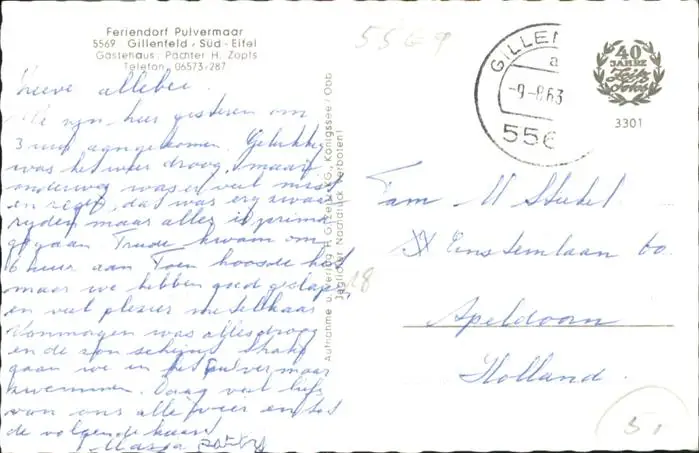 Feriendorf Pulvermaar
5569 Gillenfeld / Süd-Eifel
Gästehaus: Pächter H. Zopfs
Telefon 06573/287
5569
GILLEN
a
-9-8.63
556
40
JAHRE
3301
Lieve allebei.
We zijn hier gisteren om
3 uur aangekomen. Gelukkig
was het weer droog, maar
onderweg was er veel mist
en regen, dat was erg zwaar
rijden maar alles is prima
gegaan. Trude kwam om
6 uur aan Toen hoosde het
maar we hebben goed geslapen
en veel plezier met elkaar
Vanmorgen was alles droog
en de zon scheint. Straks
gaan we in het Pulvermaar
zwemmen. Daag veel liefs
van ons alle vier en tot
de volgende kaart
Massa
Aufnahme u. Verlag H. G., Königssee / Obb
Jeglicher Nachdruck verboten!
18
Fam M Stukel
Einsteinlaan 60.
Apeldoorn
Holland.
51